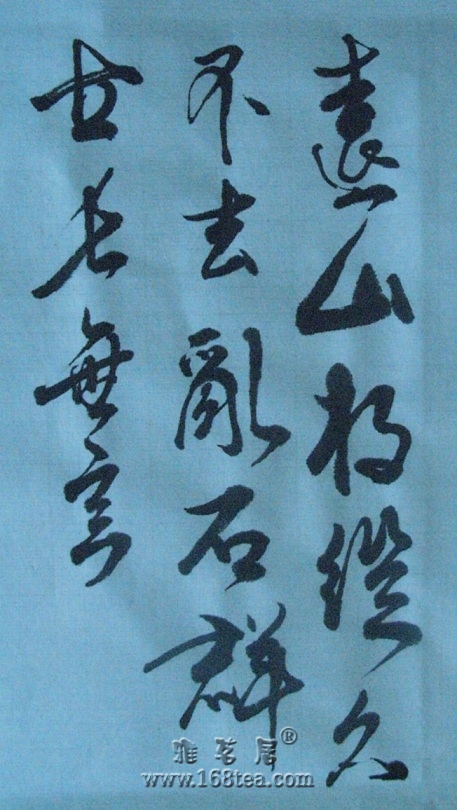 遠山縱久
不去亂石群
長無言
雅茗居®
www.168tea.com